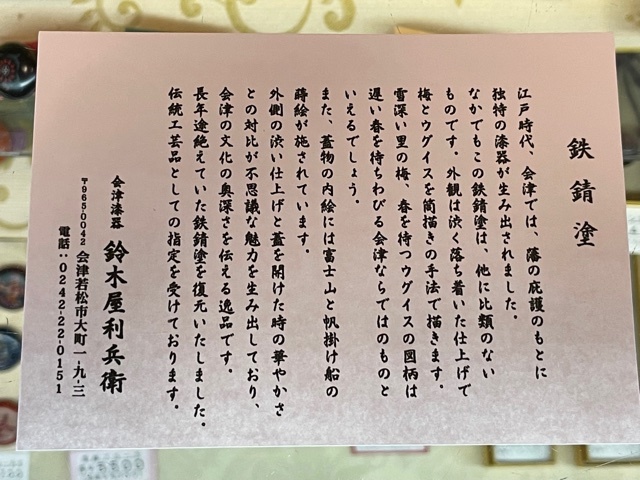 鉄錆塗
江戸時代、会津では、藩の庇護のもとに
独特の漆器が生み出されました。
なかでもこの鉄錆塗は、他に比類のない
ものです。外観は渋く落ち着いた仕上げで
梅とウグイスを筒描きの手法で描きます。
雪深い里の梅、春を待つウグイスの図柄は
遅い春を待ちわびる会津ならではのものと
いえるでしょう。
また、蓋物の内絵には富士山と帆掛け船の
蒔絵が施されています。
外側の渋い仕上げと蓋を開けた時の華やかさ
との対比が不思議な魅力を生み出しており、
会津の文化の奥深さを伝える逸品です。
長年途絶えていた鉄錆塗を復元いたしました。
伝統工芸品としての指定を受けております。
会津漆器 鈴木屋利兵衛
〒965-0042 会津若松市大町一-九-三
電話:0242-22-0151